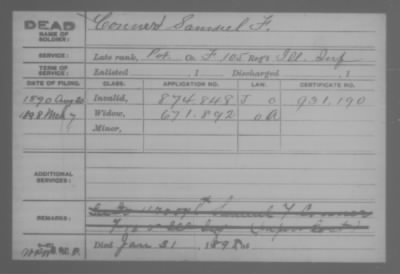 DEAD
NAME OF SOLDIER:
Connard Samuel F.
SERVICE:
Late rank, Pvt. Co. F, 105 Reg't Ill. Inf
TERM OF SERVICE:
Enlisted , 1 Discharged , 1
DATE OF FILING. CLASS. APPLICATION NO. LAW. CERTIFICATE NO.
1890 Aug Invalid, 874.848 J O 931,190
1898 Mch 7 Widow, 671.892 O A
Minor,
ADDITIONAL SERVICES:
REMARKS:
Samuel F Conner
Died Jan 31, 1898